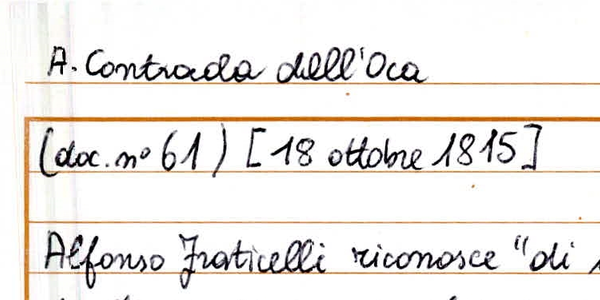 A. Contrada dell'Oca
(doc. nº 61) [18 ottobre 1815]
Alfonso Fraticelli riconosce "di